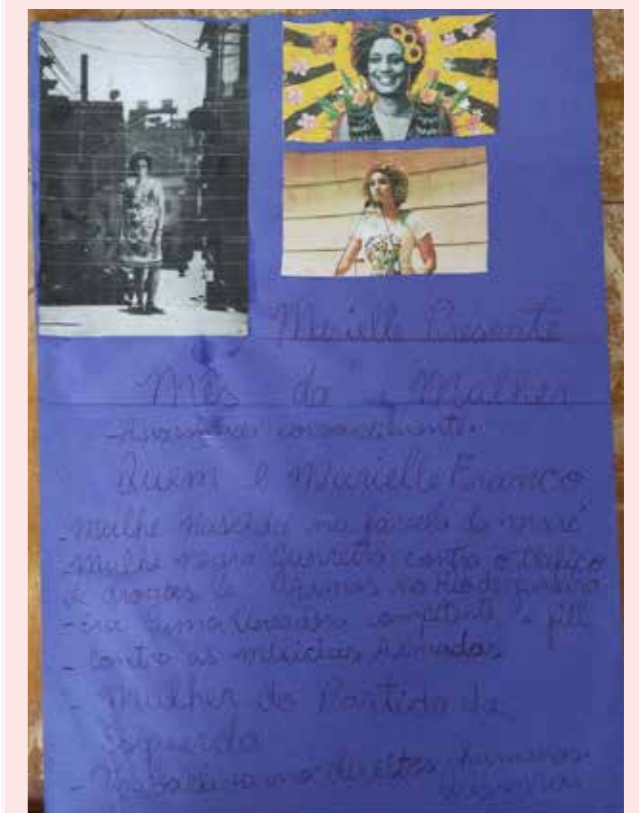 Marielle Presente
Mês da Mulher
Quem é Marielle Franco
- Mulhe Nascida na favela da maré
- Mulhe negra Guerreira contra o tráfico
de drogas e Armas no Rio de janeiro
- era uma Vereadora competente e
- contra as milícias Armadas
- Mulher do Partido da
Esquerda
- direitos humanos